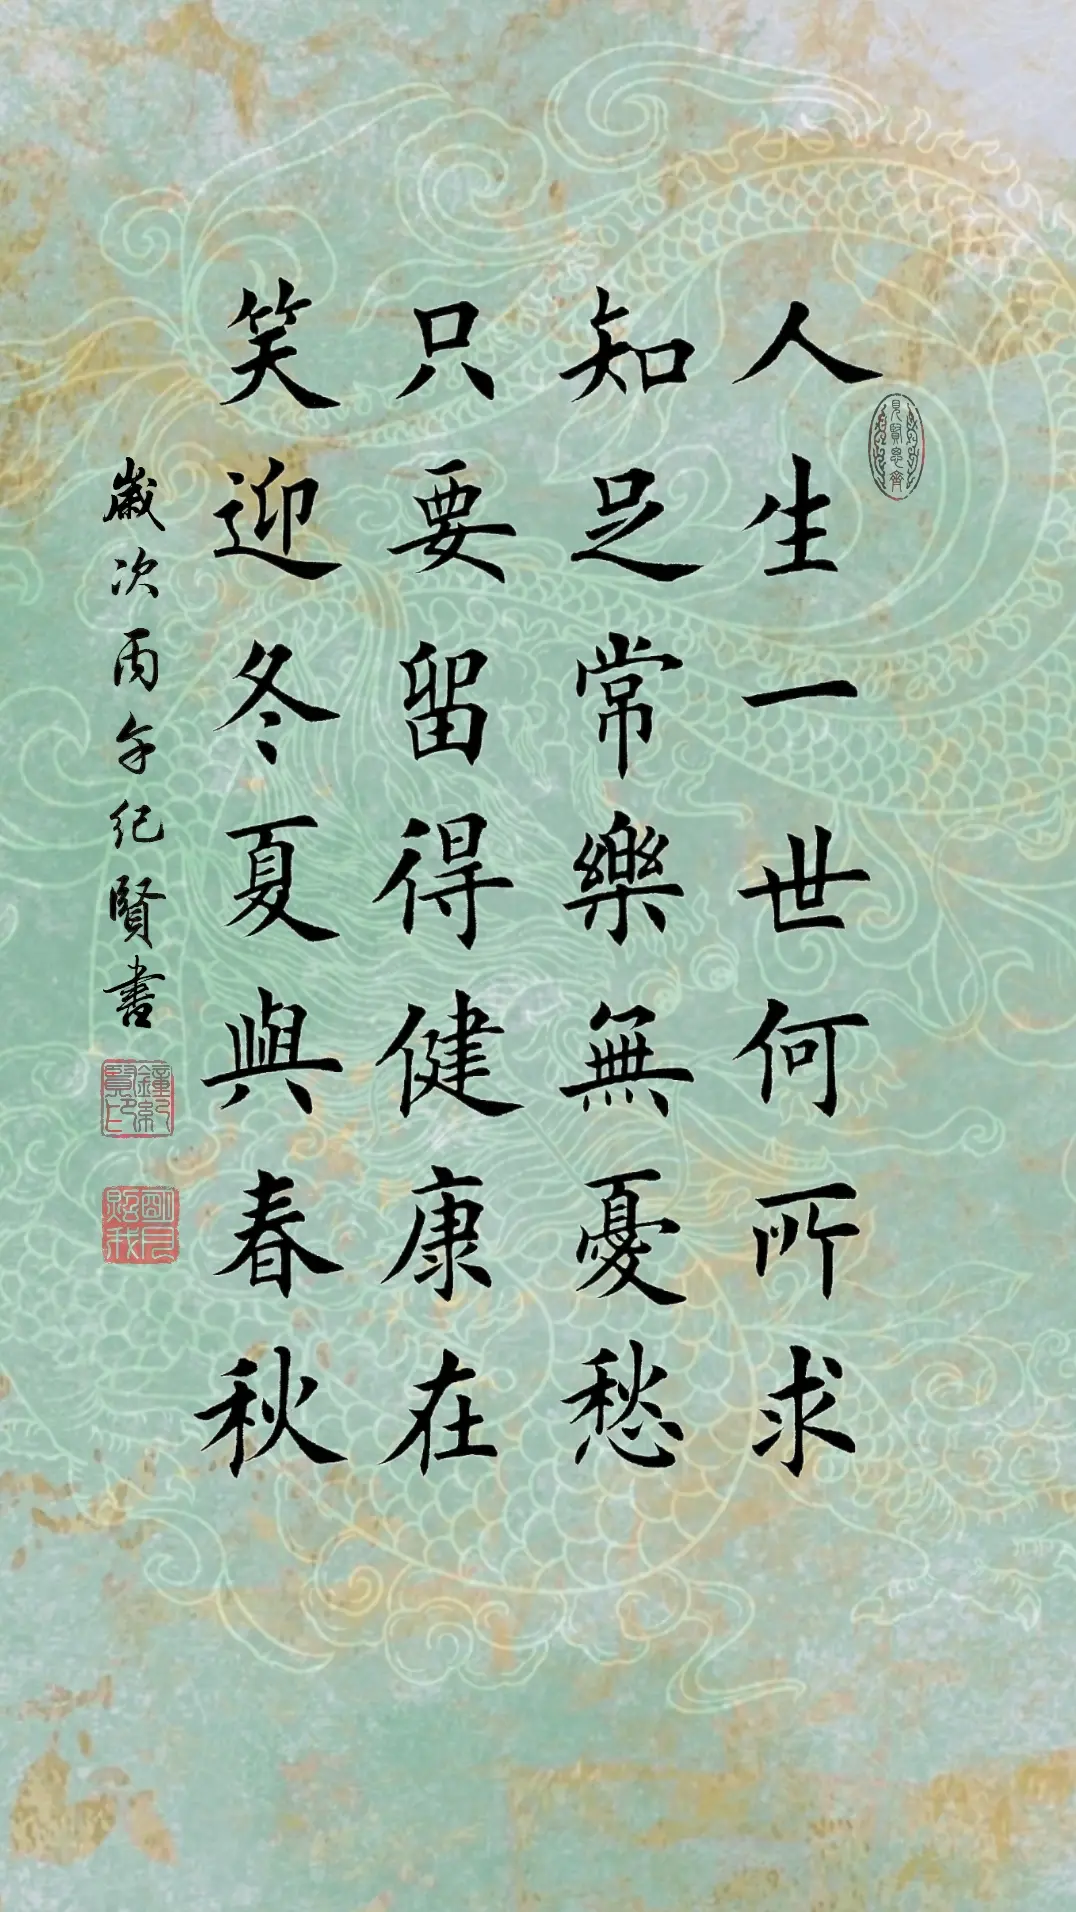 人生一世何所求
知足常樂無憂愁
只要留得健康在
笑迎冬夏與春秋
歲次丙午紀賢書
見賢思齊
鐘紀賢印